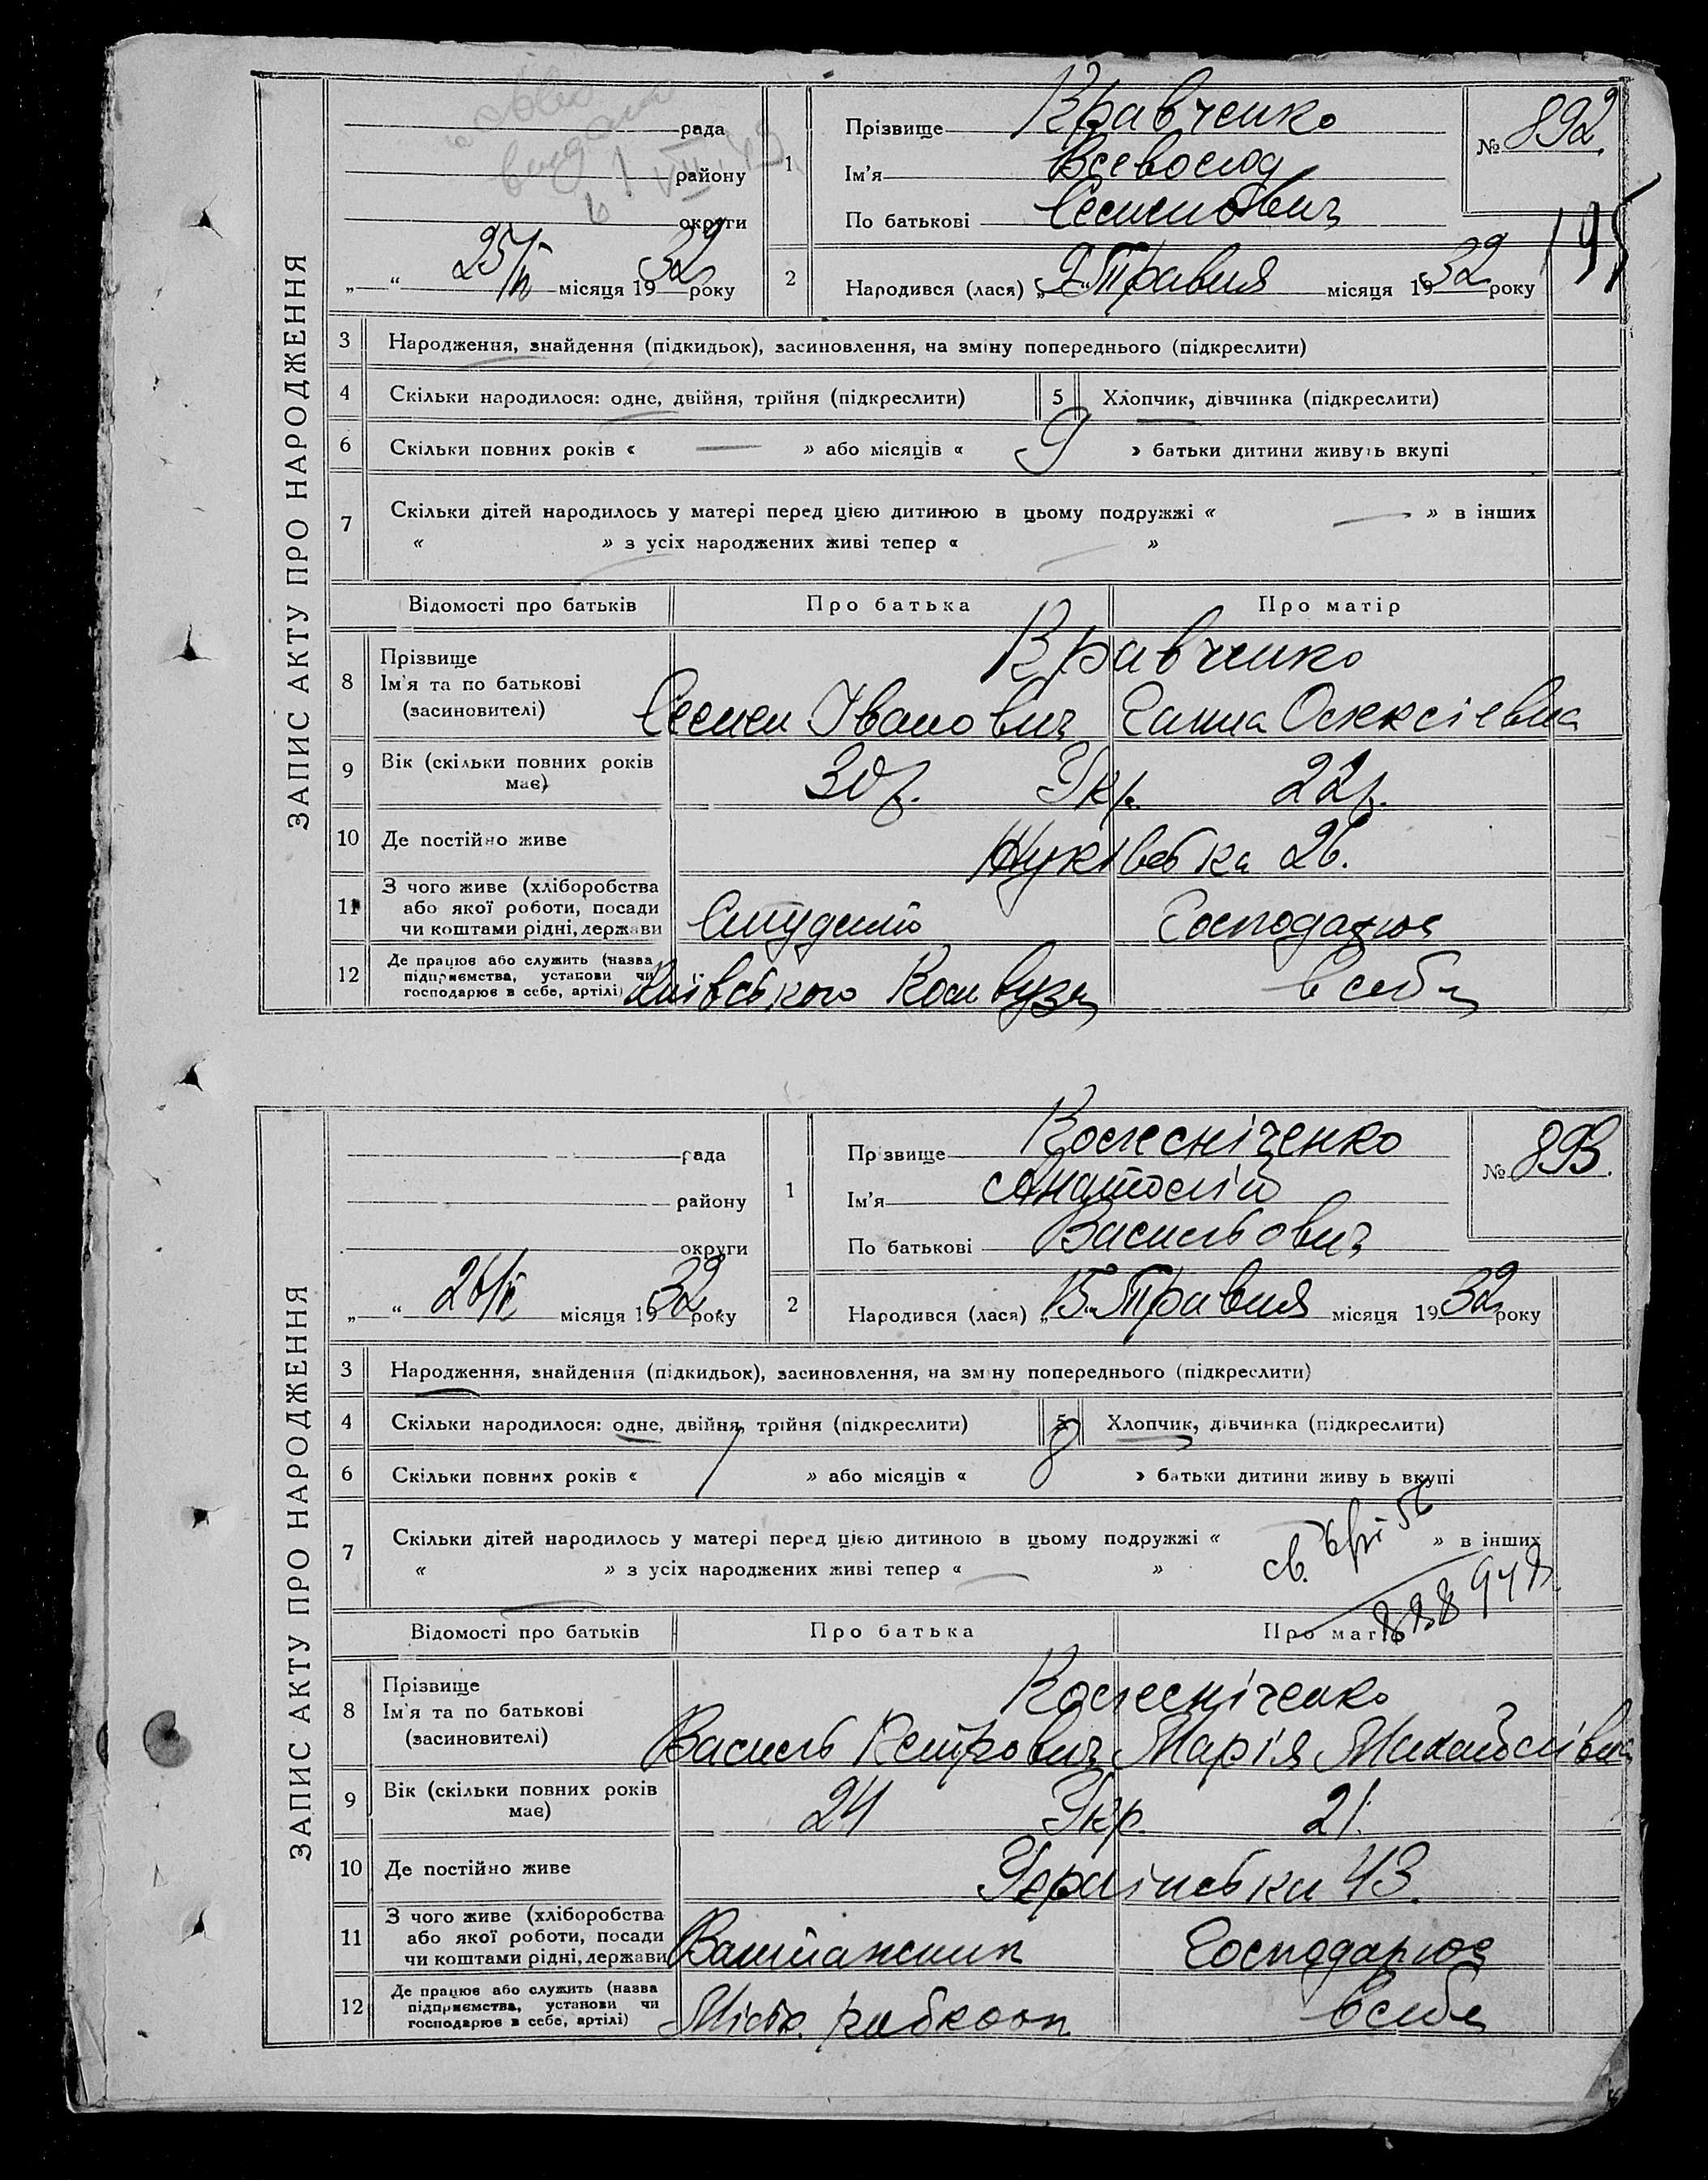 ЗАПИС АКТУ ПРО НАРОДЖЕННЯ
рада
району
округи
„ “ 25/V місяця 1932 року
1
Прізвище Кравченко
Ім'я Всеволод
По батькові Семенович
№ 892.
195
2
Народився (лася) „9“ Травня місяця 1932 року
3 Народження, знайдення (підкидьок), засиновлення, на зміну попереднього (підкреслити)
4 Скільки народилося: одне, двійня, трійня (підкреслити) 5 Хлопчик, дівчинка (підкреслити)
6 Скільки повних років « — » або місяців « 9 » батьки дитини живуть вкупі
7 Скільки дітей народилось у матері перед цією дитиною в цьому подружжі « — » в інших
« — » з усіх народжених живі тепер « — »
Відомості про батьків Про батька Про матір
8 Прізвище
Ім'я та по батькові
(засиновителі)
Кравченко
Семен Іванович Ганна Олексієвна
9 Вік (скільки повних років має) 30 р. Укр. 22 р.
10 Де постійно живе Жуківська 26.
11 З чого живе (хліборобства
або якої роботи, посади
чи коштами рідні, держави
Студент Господарює
12 Де працює або служить (назва
підприємства, установи чи
господарює в себе, артілі)
Київського Комвузу в себе
ЗАПИС АКТУ ПРО НАРОДЖЕННЯ
рада
району
округи
„ “ 26/V місяця 1932 року
1
Прізвище Колесніченко
Ім'я Анатолій
По батькові Васильович
№ 893.
2
Народився (лася) „15“ Травня місяця 1932 року
3 Народження, знайдення (підкидьок), засиновлення, на зміну попереднього (підкреслити)
4 Скільки народилося: одне, двійня, трійня (підкреслити) 5 Хлопчик, дівчинка (підкреслити)
6 Скільки повних років « 1 » або місяців « 8 » батьки дитини живуть вкупі
7 Скільки дітей народилось у матері перед цією дитиною в цьому подружжі « » в інших
« » з усіх народжених живі тепер « — »
Відомості про батьків Про батька Про матір
8 Прізвище
Ім'я та по батькові
(засиновителі)
Колесніченко
Василь Петрович Марія Михайлівна
9 Вік (скільки повних років має) 24 Укр. 21.
10 Де постійно живе Українська 43.
11 З чого живе (хліборобства
або якої роботи, посади
чи коштами рідні, держави
Вантажник Господарює
12 Де працює або служить (назва
підприємства, установи чи
господарює в себе, артілі)
Міськ. рабкооп в себе